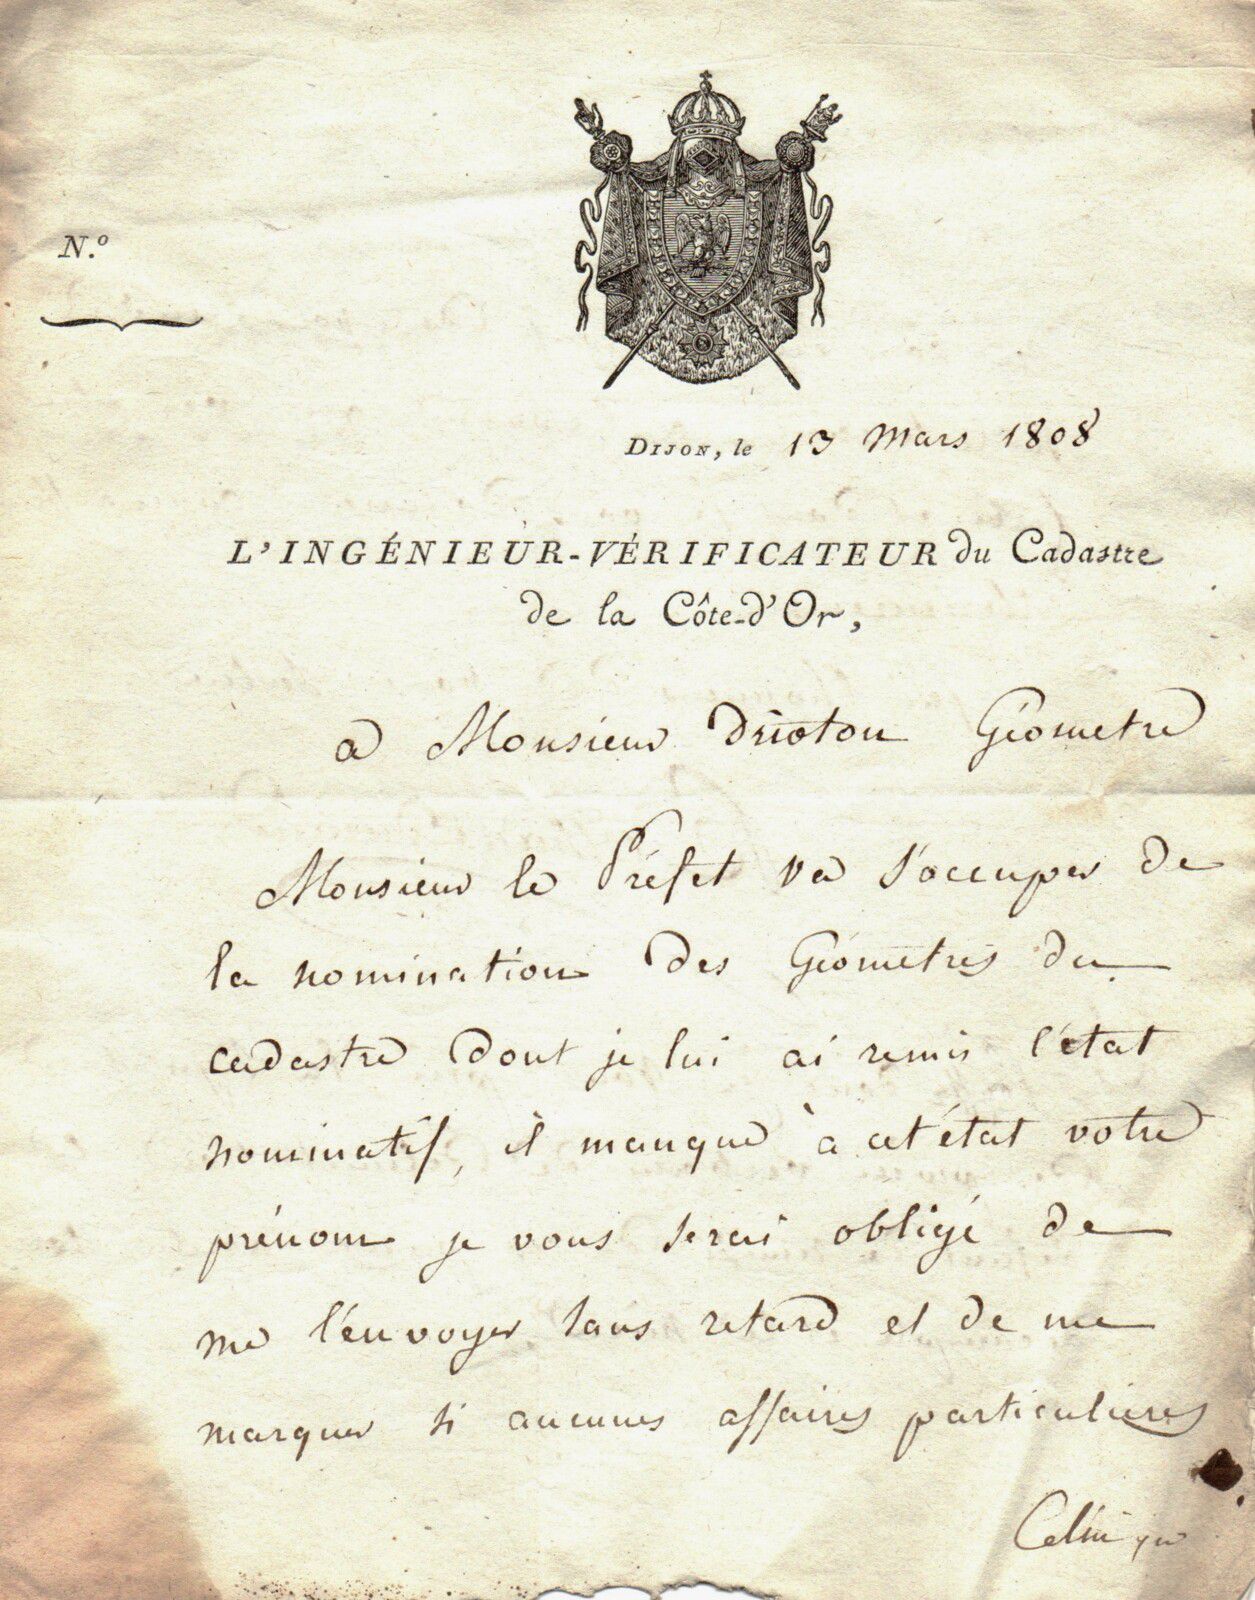 N.º
DIJON, le 13 Mars 1808
L'INGÉNIEUR-VÉRIFICATEUR du Cadastre
de la Côte-d'Or,
a Monsieur drioton Géometre
Monsieur le Préfet va s'occuper de
la nomination des Géometres du
cadastre dont je lui ai remis l'état
nominatif, il manque à cet état votre
prénom je vous serai obligé de
me l'envoyer sans retard et de me
marquer si aucunes affaires particulieres